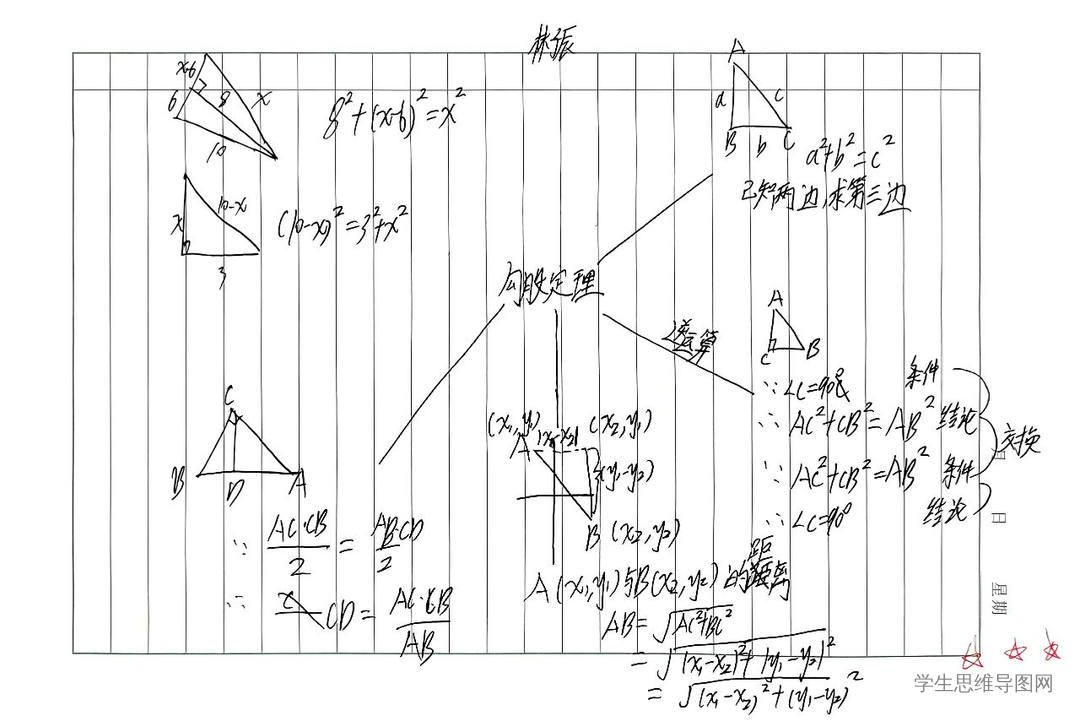 林振
x-6
6
8
x
10
8²+(x-6)²=x²
x
10-x
3
(10-x)²=3²+x²
A
a
c
B
b
C
a²+b²=c²
已知两边,求第三边
勾股定理
逆运算
A
C
B
∵ ∠C=90° 条件
∴ AC²+CB²=AB² 结论
∵ AC²+CB²=AB² 条件
∴ ∠C=90° 结论
交换
C
B
D
A
∵ AC·CB/2 = AB·CD/2
∴ CD= AC·CB/AB
(x₁,y₁)
|x₁-x₂|
C(x₂,y₁)
A
|y₁-y₂|
B (x₂,y₂)
A(x₁,y₁)与B(x₂,y₂)的距离
AB=√AC²+BC²
=√|x₁-x₂|²+|y₁-y₂|²
=√(x₁-x₂)²+(y₁-y₂)²
日
星期
学生思维导图网